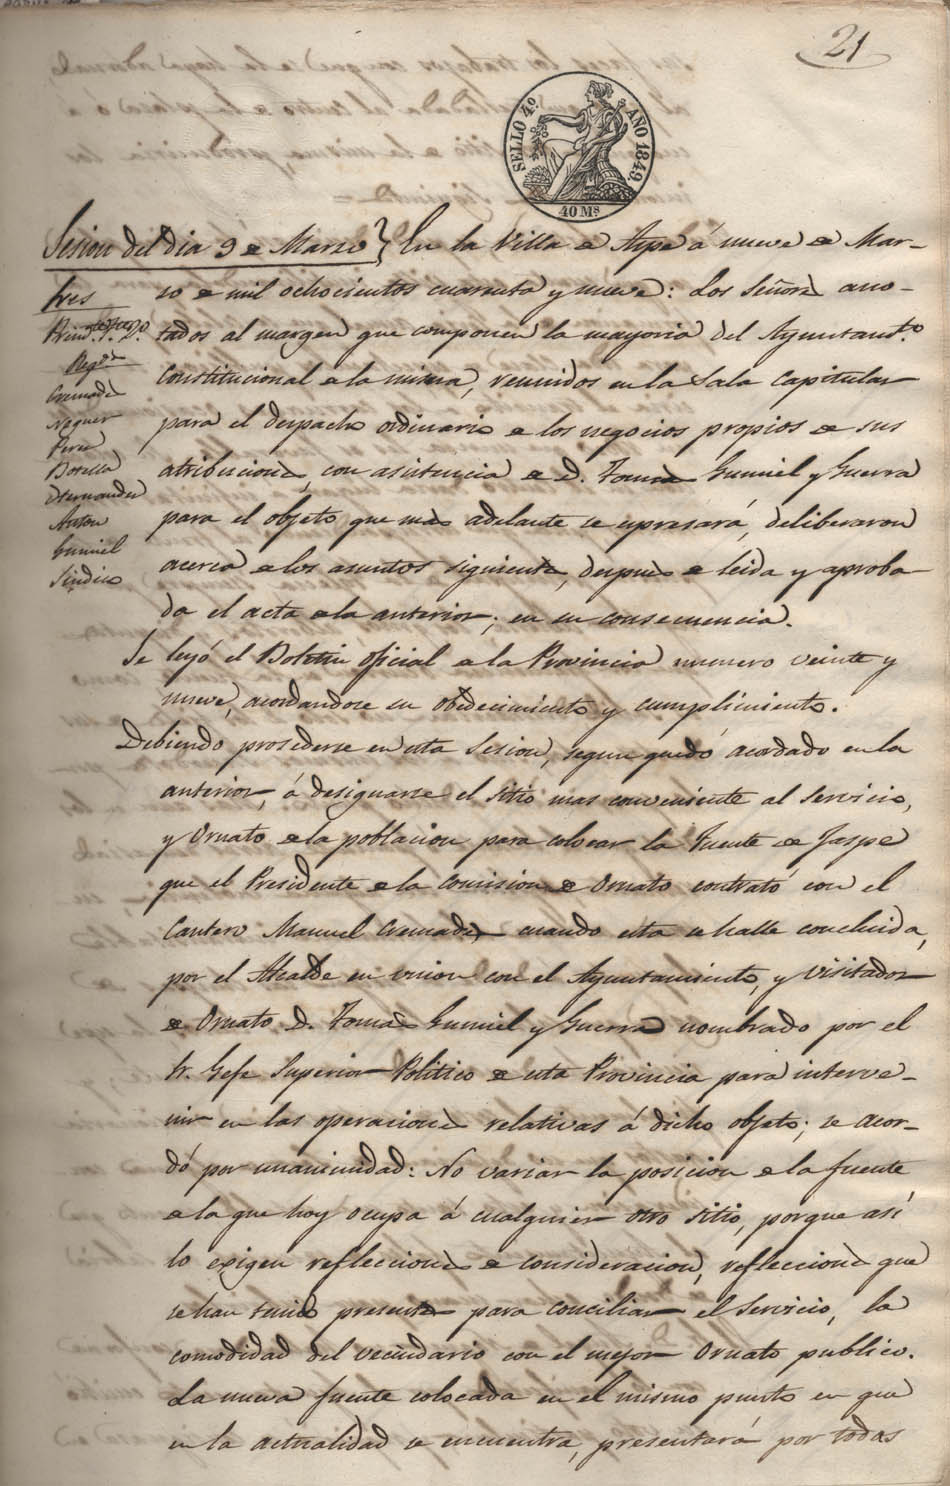 21
SELLO 4º AÑO 1849.
40 Ms
Sesion del dia 9 de Marzo } En la Villa de Aspe á nueve de Mar-
zo de mil ochocientos cuarenta y nueve: Los Señores ano-
tados al margen que componen la mayoria del Ayuntamto.
Constitucional de la misma, reunidos en la Sala Capitular
para el despacho ordinario de los negocios propios de sus
atribuciones, con asistencia de D. Tomas Gumiel y Guerra
para el objeto que mas adelante se espresará, deliberaron
acerca de los asuntos siguientes, despues de leida y aproba-
da el acta de la anterior; en su consecuencia.
Sres
Regs.
Cremades
Perez
Botella
Hernandez
Anton
Gumiel
Sindico
Se leyó el Boletin oficial de la Provincia numero veinte y
nueve, acordandose su obedecimiento y cumplimiento.
Debiendo procederse en esta Sesion, segun quedó acordado en la
anterior, á designarse el sitio mas conveniente al servicio,
y Ornato de la poblacion para colocar la Fuente de Jaspe
que el Presidente de la Comision de Ornato contrató con el
Cantero Manuel Cremades cuando esta se halle concluida,
por el Alcalde en union con el Ayuntamiento, y Visitador
de Ornato D. Tomas Gumiel y Guerra nombrado por el
Sr. Gefe Superior Politico de esta Provincia para interve-
nir en las operaciones relativas á dicho objeto; se acor-
dó por unanimidad: No variar la posicion de la fuente
de la que hoy ocupa á cualquier otro sitio, porque asi
lo exigen reflecciones de consideracion, reflecciones que
se han tenido presentes para conciliar el servicio, la
comodidad del vecindario con el mejor Ornato publico.
La nueva fuente colocada en el mismo punto en que
en la actualidad se encuentra, presentará por todas